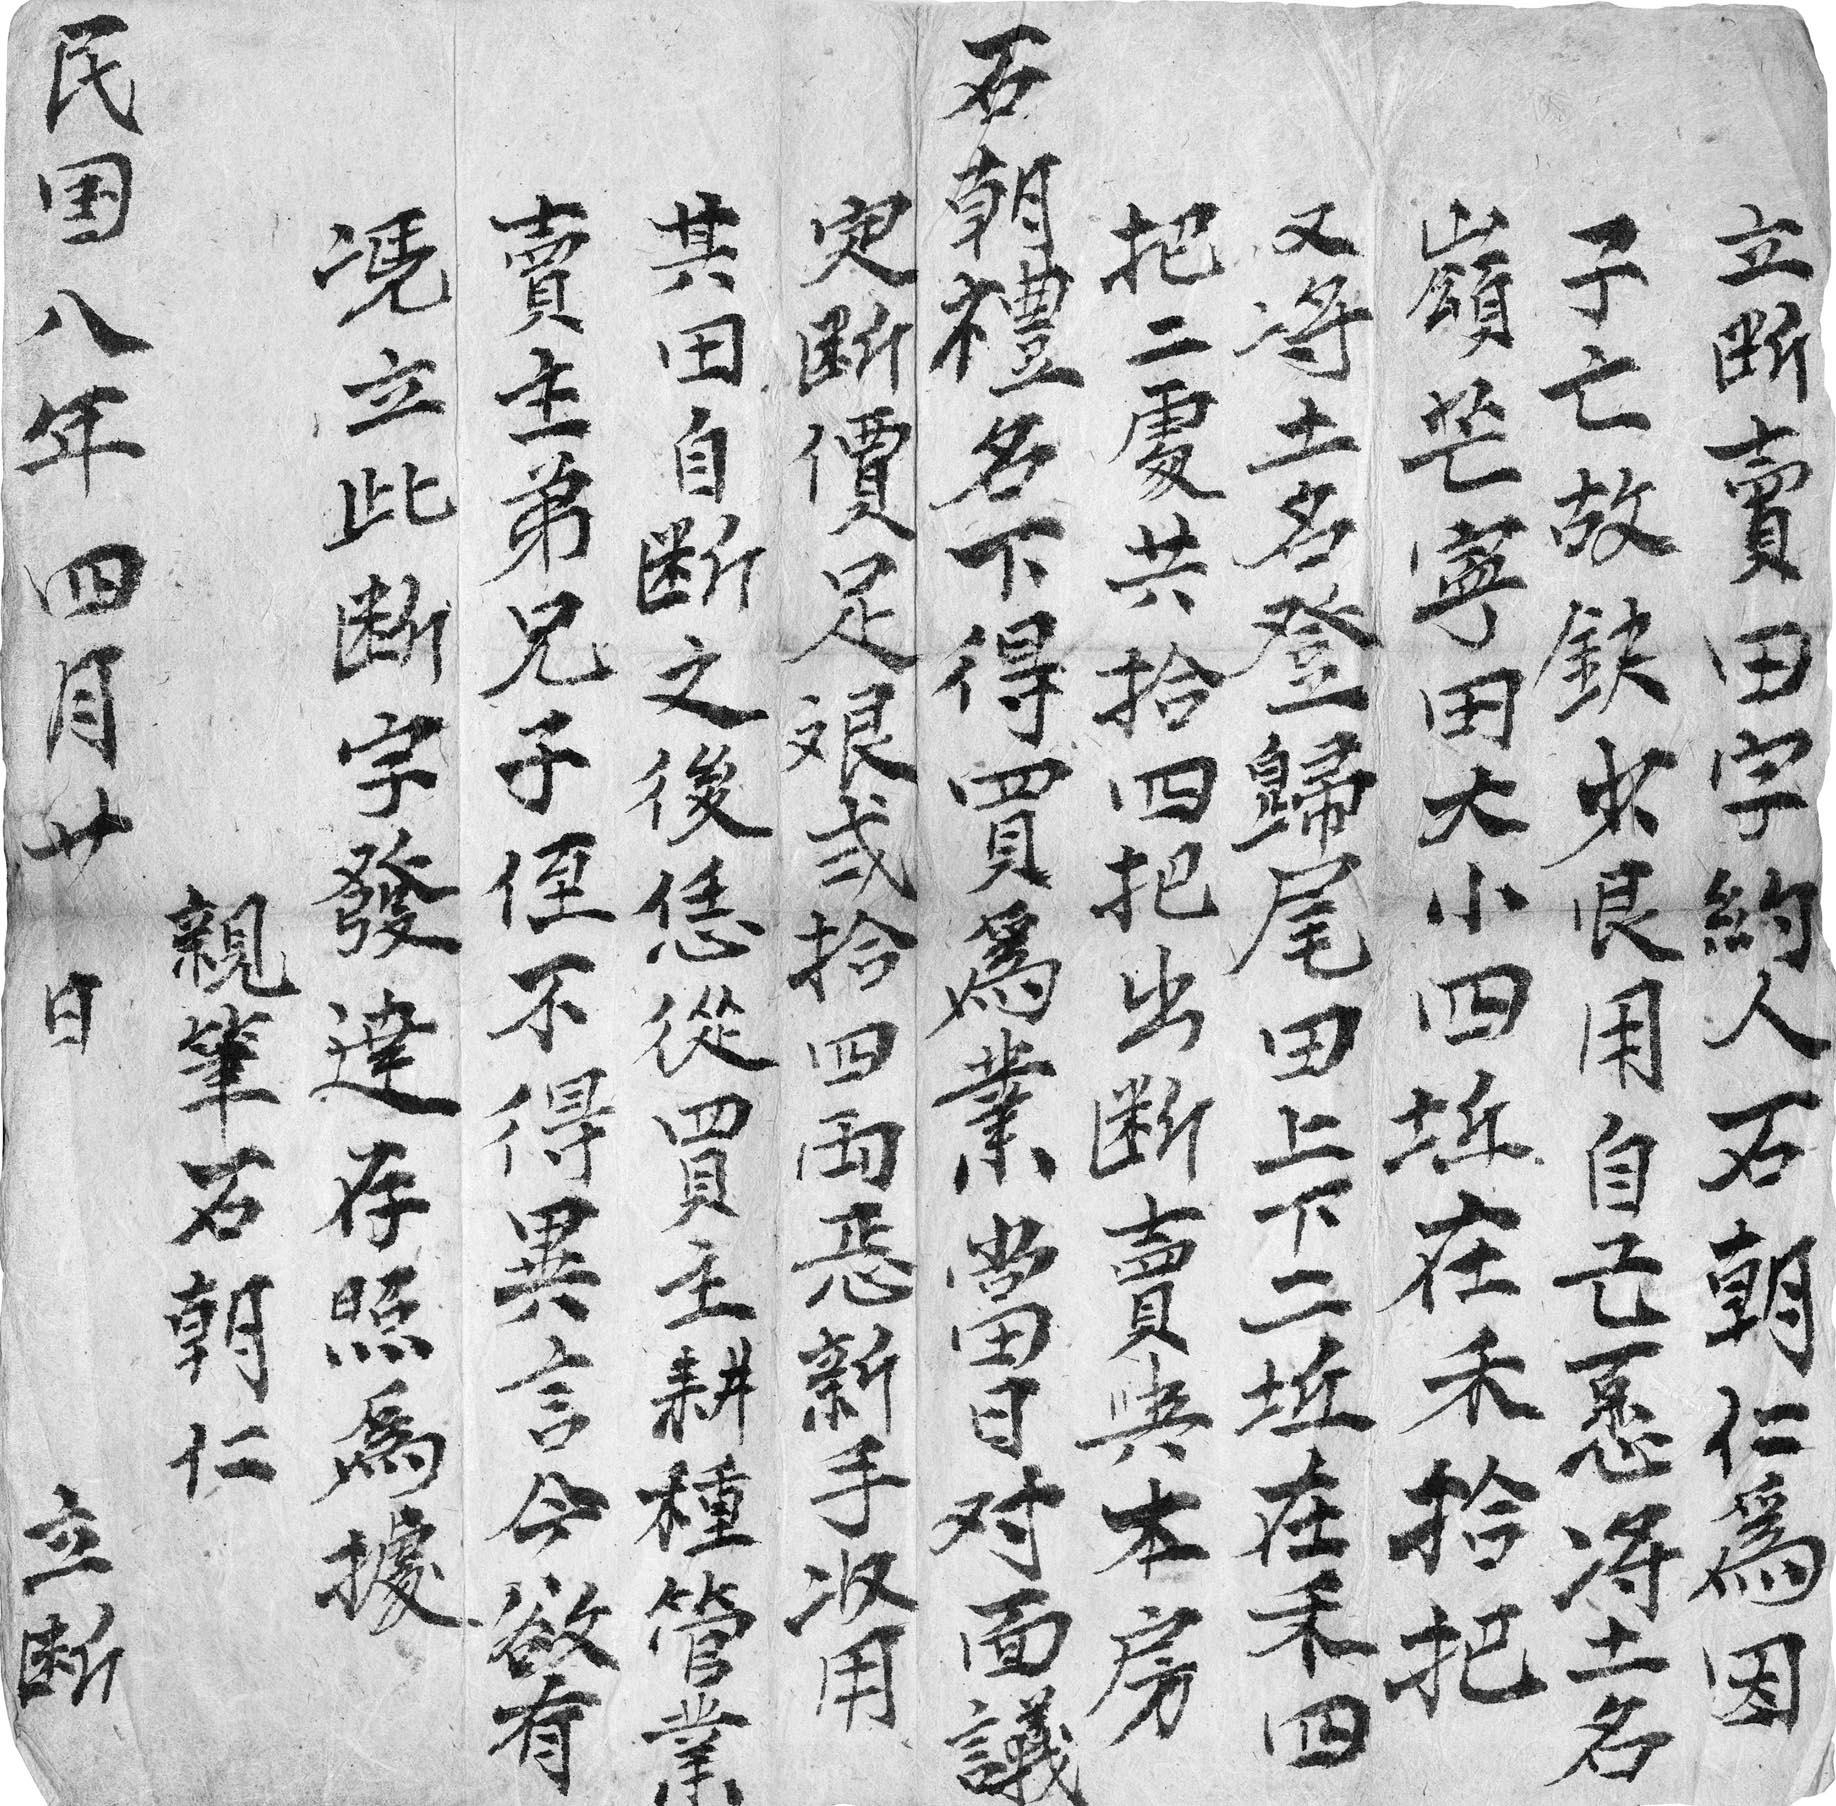 立断賣田字約人石朝仁為因
子亡故缺少艮用自己愿将土名
嶺芒寧田大小四坵在禾拾把
又将土名登歸尾田上下二坵在禾四
把二處共拾四把出断賣與本房
石朝禮名下得買為業當日对面議
定断價足艰弍拾四両恁新手收用
其田自断之後恁從買主耕種管業
賣主弟兄子侄不得異言今欲有
凴立此断字發達存照為據
親筆石朝仁
民国八年四月廿日 立断